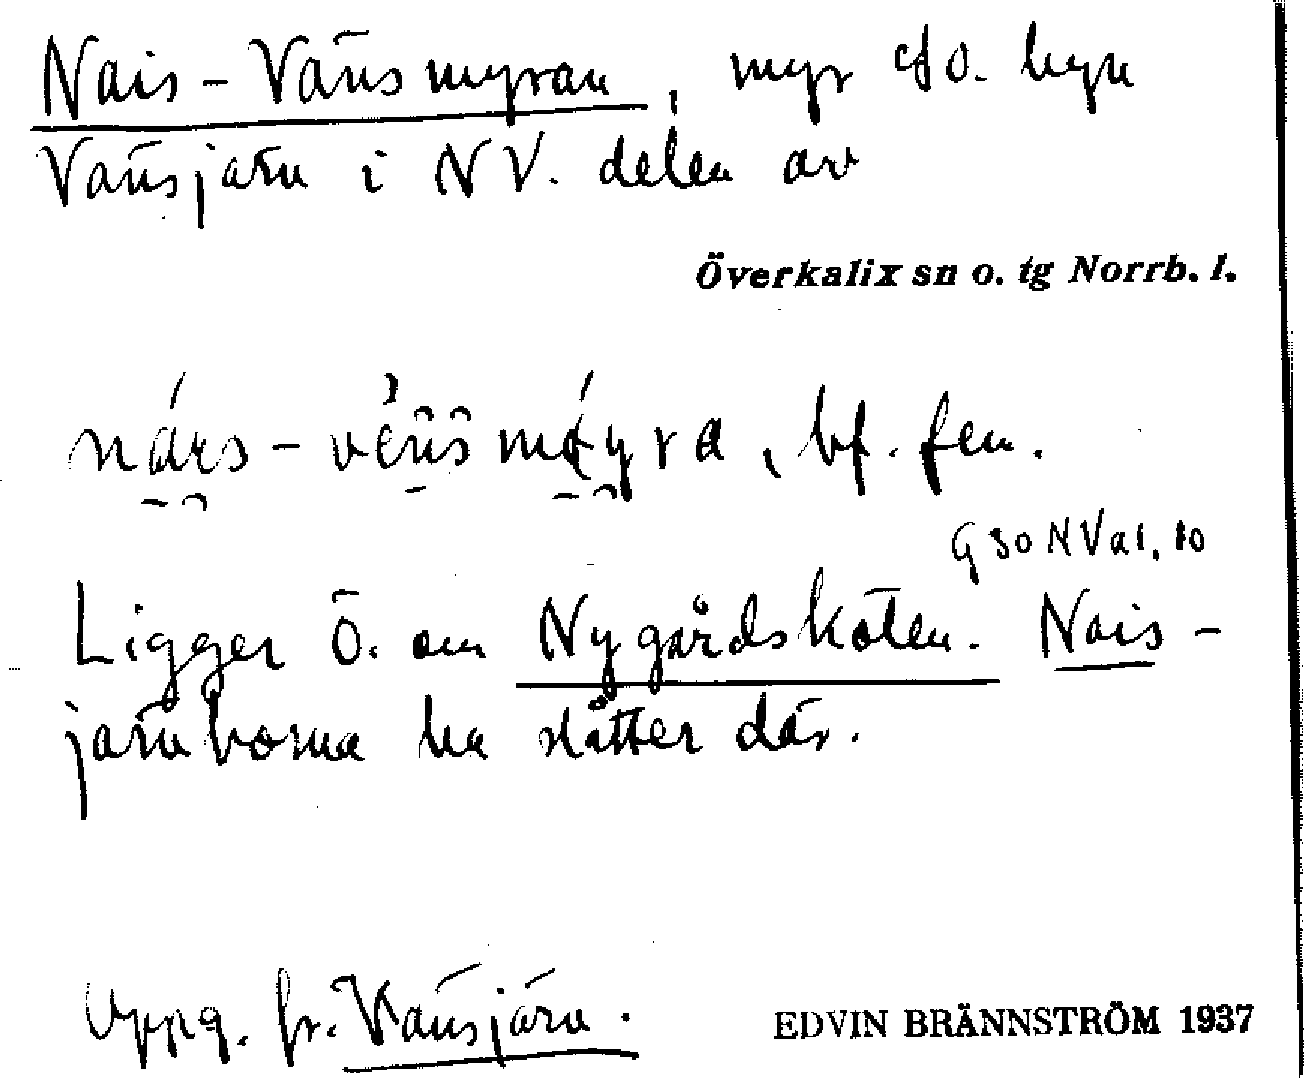 Nais-Vänsmyran, myr SO. byn
Vänsjärn i NV. delen av
Överkalix sn o. tg Norrb. l.
bf. fem.
G SO NV a1, 10
Ligger Ö. om Nygårdskölen. Nais-
järnborna ha slåtter där.
Uppg. fr. Vänsjärn.
EDVIN BRÄNNSTRÖM 1937